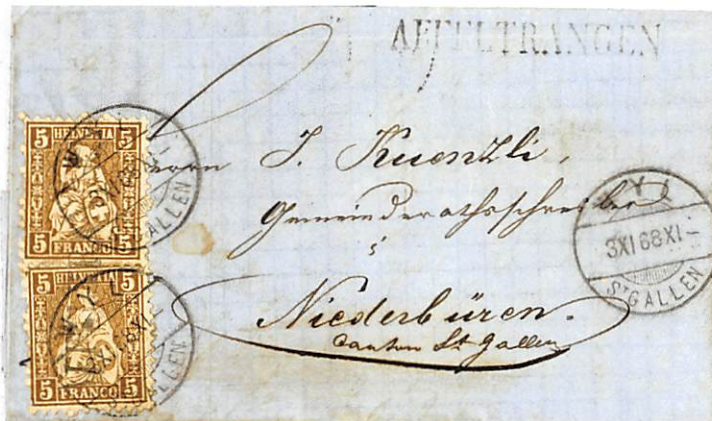 AFFELTRANGEN
5 HELVETIA 5
5 FRANCO 5
5 HELVETIA 5
5 FRANCO 5
Herrn J. Kuenzli,
Gemeinderathsschreiber
Niederbüren.
Canton St Gallen
WYL
3 XI 68 XI
ST GALLEN